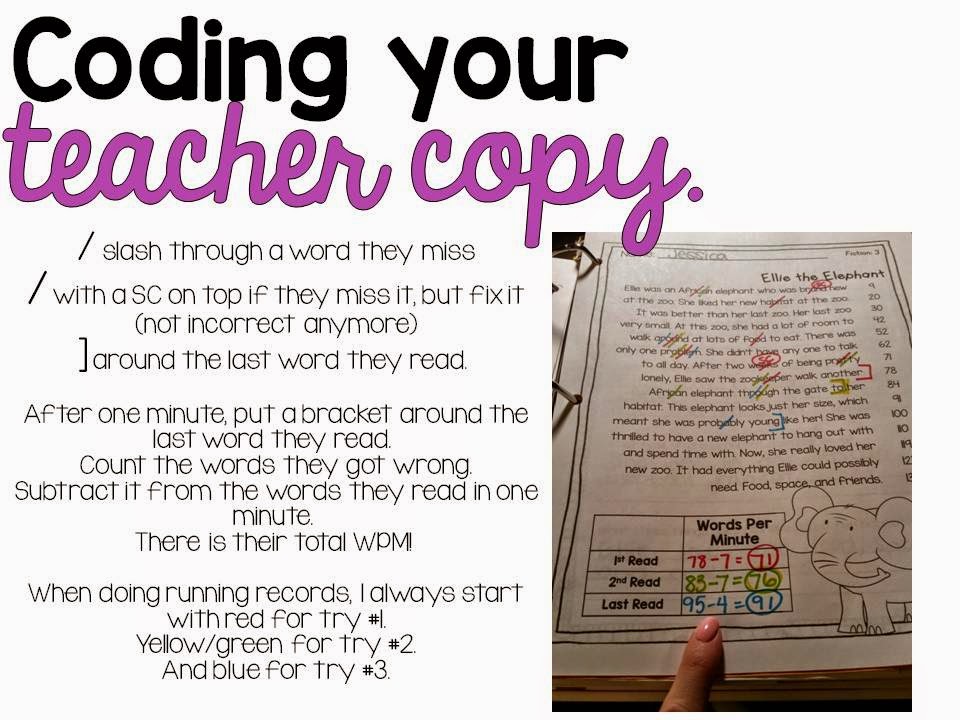 Coding your
teacher copy.
/ slash through a word they miss
/ with a SC on top if they miss it, but fix it
(not incorrect anymore)
] around the last word they read.
After one minute, put a bracket around the
last word they read.
Count the words they got wrong.
Subtract it from the words they read in one
minute.
There is their total WPM!
When doing running records, I always start
with red for try #1.
Yellow/green for try #2.
And blue for try #3.
Jessica
Fiction: 3
Ellie the Elephant
Ellie was an African elephant who was brand new 9
at the zoo. She liked her new habitat at the zoo. 20
It was better than her last zoo. Her last zoo 30
very small. At this zoo, she had a lot of room to 42
walk around at lots of food to eat. There was 52
only one problem. She didn't have any one to talk 62
to all day. After two weeks of being pretty 71
lonely, Ellie saw the zookeeper walk another ] 78
African elephant through the gate to ] her 84
habitat. This elephant looks just her size, which 91
meant she was probably young ] like her! She was 100
thrilled to have a new elephant to hang out with 110
and spend time with. Now, she really loved her 119
new zoo. It had everything Ellie could possibly
need. Food, space, and friends.
Words Per
Minute
1st Read 78-7 = 71
2nd Read 83-7 = 76
Last Read 95-4 = 91